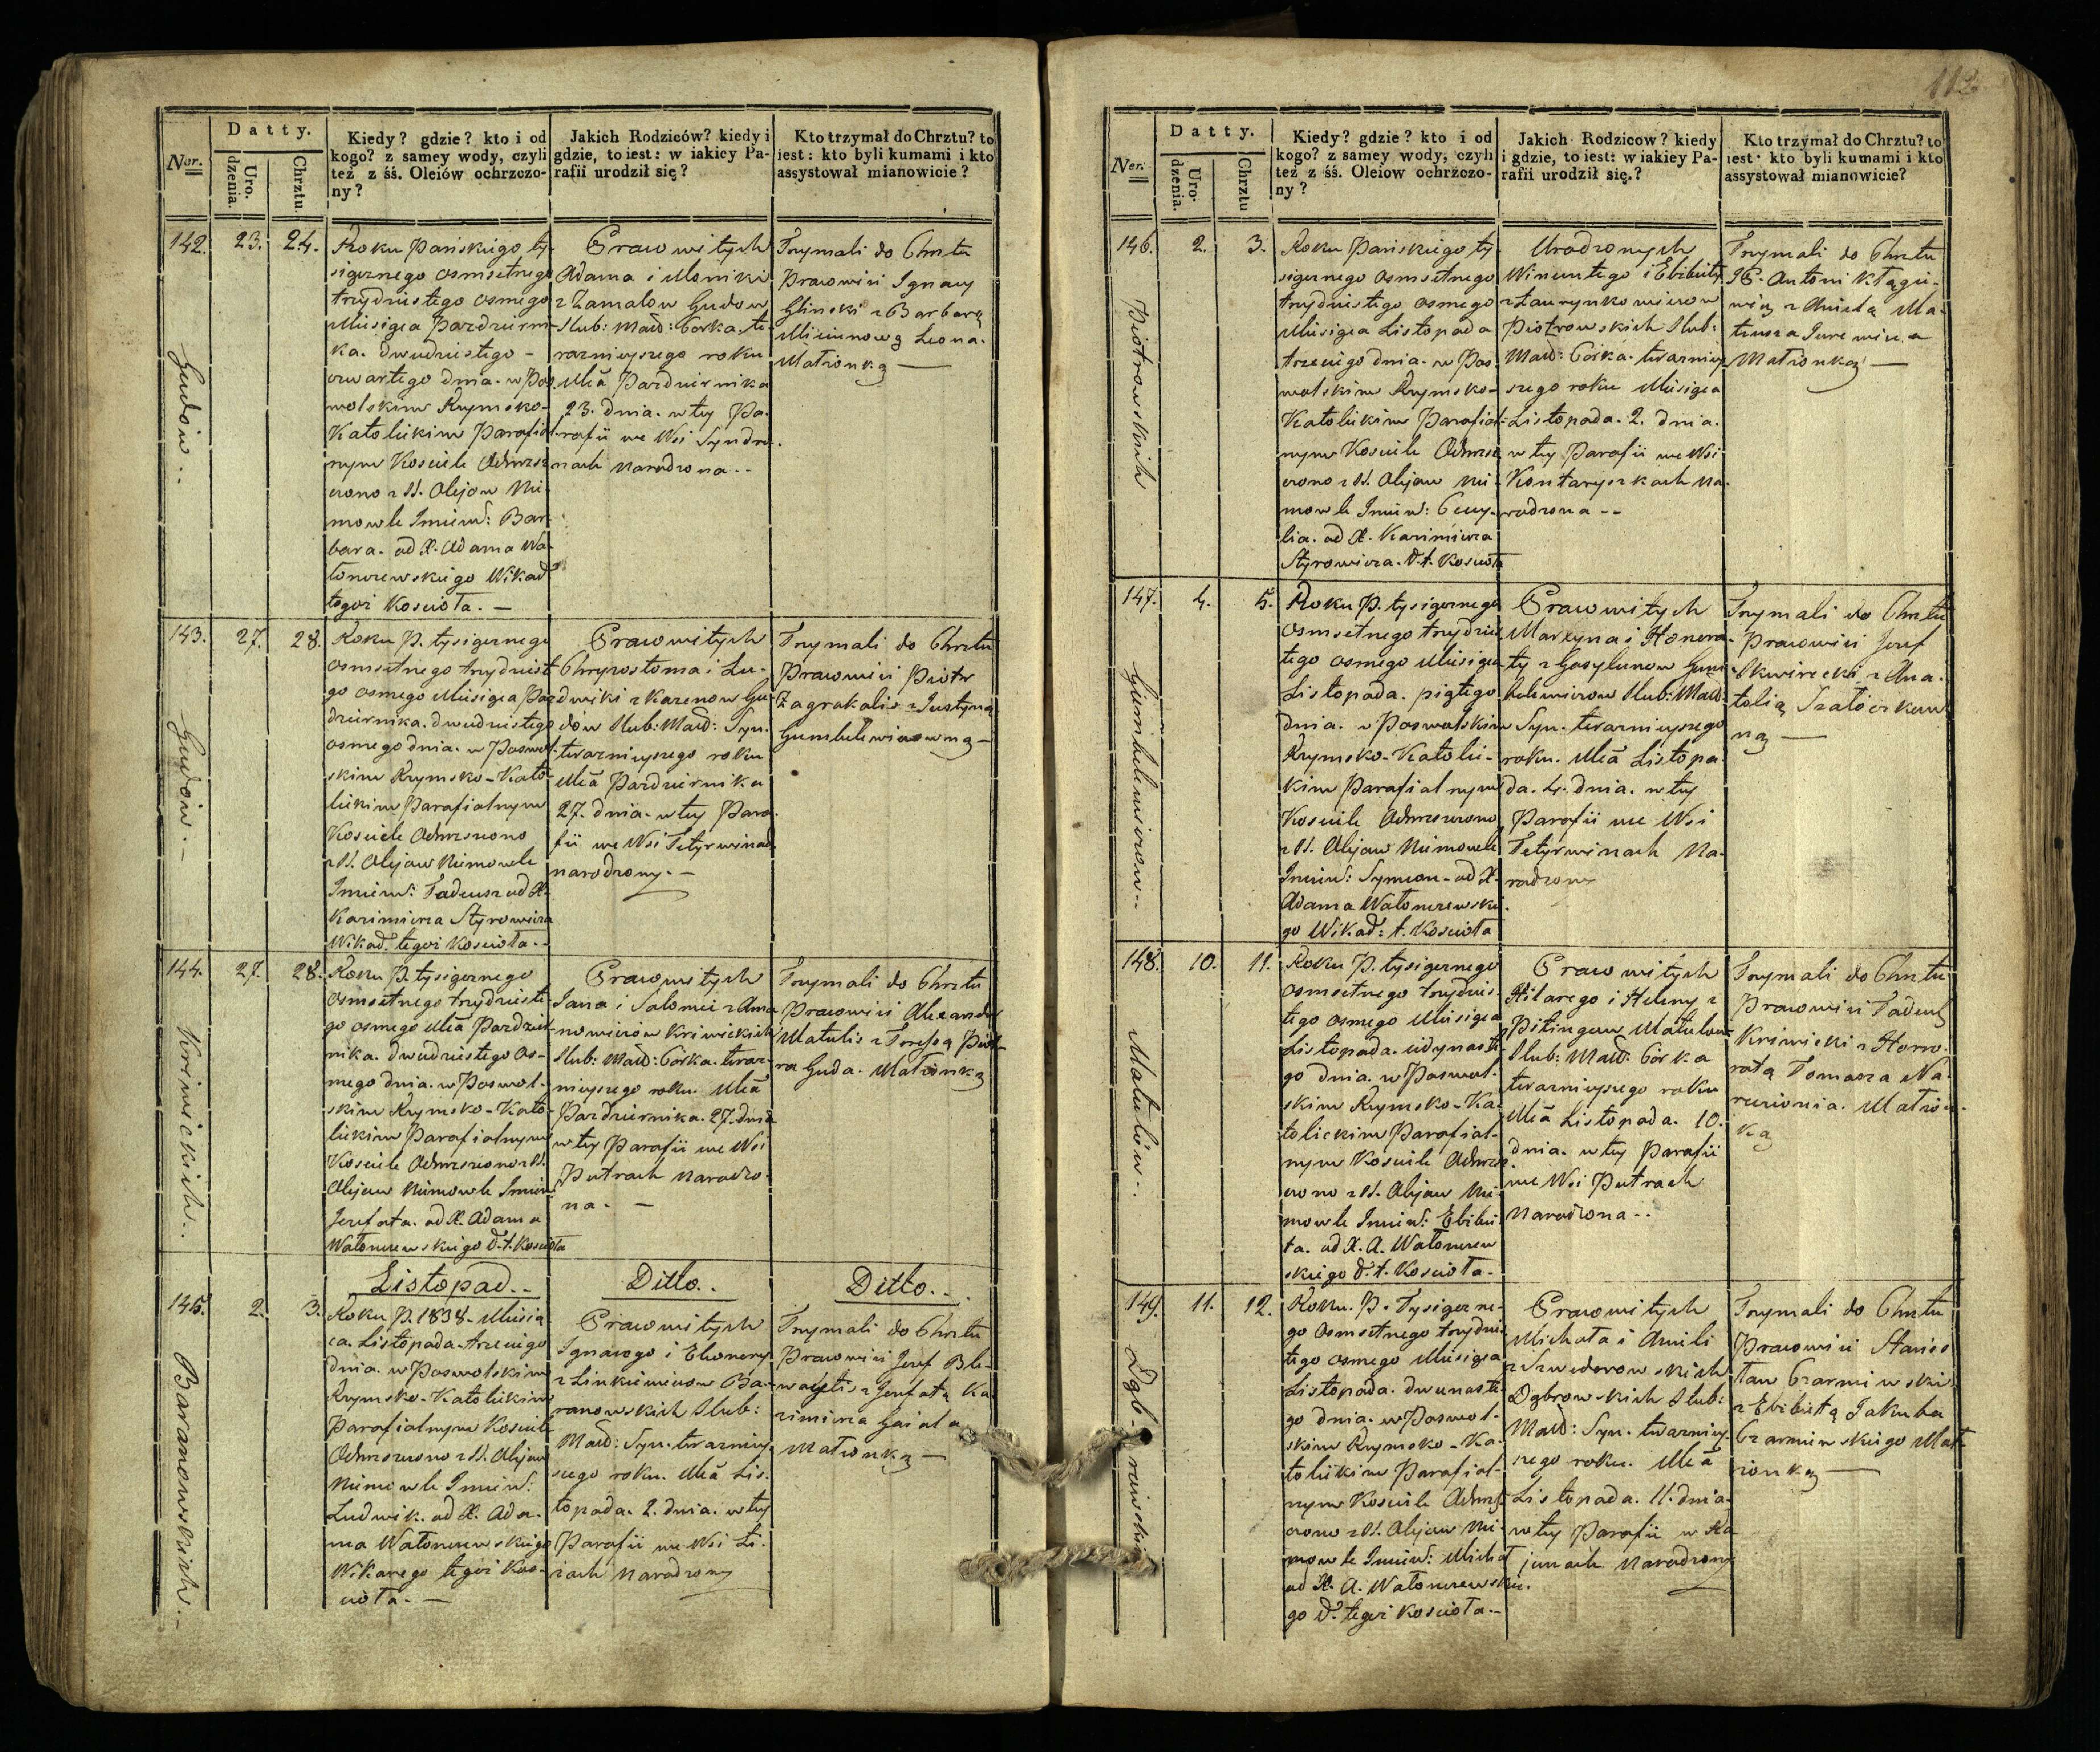 112
Datty.
Ner.
Uro-
dzenia.
Chrztu.
Kiedy? gdzie? kto i od
kogo? z samey wody, czyli
też z śś. Oleiów ochrzczo-
ny?
Jakich Rodziców? kiedy i
gdzie, to iest: w iakiey Pa-
rafii urodził się?
Kto trzymał do Chrztu? to
iest: kto byli kumami i kto
assystował mianowicie?
142.
23.
24.
Gudow..
Roku Pańskiego ty-
siącznego osmsetnego
trzydziestego osmego
Miesiąca Pazdzierni-
ka. dwudziestego -
czwartego dnia. w Pos-
wolskim Rzymsko-
Katolickim Parafial-
nym Kosciele Ochrzcz
czono z SS. Olejow Nie-
mowle Imieniem: Bar-
bara. od X. Adama Wa-
tonczewskiego Wikad
tegoż Kosciola. -
Prawowitych
Adama i Moniki
z Zamalow Gudow
Slub: Małż: Corka, te-
raznieyszego roku
Mca Pazdziernika
23. dnia. w tey Pa-
rafii we Wsi Syndra-
nach narodzona..
Trzymali do Chrztu
Prawowici Ignacy
Glinski z Barbarą
Leona.
Małżonką —
143.
27.
28.
Gudow.. -
Roku P. tysiącznego
osmsetnego trzydziest
go osmego Miesiąca Paz
dziernika. dwudziestego
osmego dnia. w Poswol-
skim Rzymsko-Kato-
lickim Parafialnym
Kosciele Ochrzczono
z SS. Olejow Niemowle
Imieniem: Tadeusz od X.
Kazimierza Styrowicza
Wikad. tegoż Kosciola..
Prawowitych
Chryzostoma i Lu-
dwiki z Karenow Gu-
dow Slub: Małż: Syn.
teraznieyszego roku
Mca Pazdziernika
27. dnia. w tey Para-
fii we Wsi Tetyrwinach
narodzony. -
Trzymali do Chrztu
Prawowici Piotr
Zagrakalis z Justyną
Gumbelewiczowną -
144.
27.
28.
Kriwickich..
Roku P. tysiącznego
osmsetnego trzydzieste-
go osmego Mca Pazdzier-
nika. dwudziestego os-
mego dnia. w Poswol-
skim Rzymsko-Kato-
lickim Parafialnym
Kosciele Ochrzczono z SS.
Olejow Niemowle Imien
Jozefata. od X. Adama
Watonczewskiego W. t. Kosciola
Prawowitych
Jana i Salomei z Ama
nowiczow Kriwickich
Slub: Małż: Corka. teraz-
nieyszego roku. Mca
Pazdziernika. 27. dnia
w tey Parafii we Wsi
Putrach narodzo-
na. -
Trzymali do Chrztu
Prawowici Alexander
Matulis z Teressą Piot-
ra Guda. Małżonką
Listopad..
Ditto..
Ditto..
145.
2.
3.
Baranowskich. -
Roku P. 1838. Miesią
ca. Listopada. trzeciego
dnia. w Poswolskim
Rzymsko-Katolickim
Parafialnym Kosciele
Ochrzczono z SS. Olejow
Niemowle Imien:
Ludwik. od X. Ada-
ma Watonczewskiego
Wikarego tegoż Kos-
ciola. -
Prawowitych
Ignacego i Eleonory
z Linkiewiczow Ba-
ranowskich Slub:
Małż: Syn. terazniey-
szego roku. Mca Lis-
topada. 2. dnia. w tey
Parafii we Wsi Li-
ciach narodzony
Trzymali do Chrztu
Prawowici Jozef Ble-
z Jozefatą Ka-
zimierza Gaiala
Małżonką —
Datty.
Ner.
Uro-
dzenia.
Chrztu
Kiedy? gdzie? kto i od
kogo? z samey wody, czyli
też z śś. Oleiow ochrzczo-
ny?
Jakich Rodzicow? kiedy
i gdzie, to iest: w iakiey Pa-
rafii urodził się.?
Kto trzymał do Chrztu? to
iest: kto byli kumami i kto
assystował mianowicie?
146.
2.
3.
Piotrowskich
Roku Pańskiego ty-
siącznego osmsetnego
trzydziestego osmego
Miesiąca Listopada
trzeciego dnia. w Pos-
wolskim Rzymsko-
Katolickim Parafial-
nym Kosciele Ochrzcz
czono z SS. Olejow Nie-
mowle Imien: Cecy-
lia. od X. Kazimierza
Styrowicza. W. t. Kosciola
Urodzonych
Wincentego i Elżbiety
z Lawrynkowiczow
Piotrowskich Slub:
Małż: Córka. teazniey-
szego roku Miesiąca
Listopada. 2. dnia.
w tey Parafii we Wsi
Kontaryszkach na-
rodzona..
Trzymali do Chrztu
JP. Antoni Kłągie-
wicz z Anielą Ma-
teusza Jurewicza
Małżonką —
147.
4.
5.
Gumbelewiczow..
Roku P. tysiącznego
osmsetnego trzydzies
tego osmego Miesiąca
Listopada. piątego
dnia. w Poswolskim
Rzymsko-Katolic-
kim Parafialnym
Kosciele Ochrzczono
z SS. Olejow Niemowle
Imien: Symeon. od X.
Adama Watonczewskie-
go Wikad: t. Kosciola
Prawowitych
Marcyna i Honora-
ty z Gasylunow Gum-
belewiczow Slub: Małż:
Syn. teraznieyszego
roku. Mca Listopa-
da. 4. dnia. w tey
Parafii we Wsi
Tetyrwinach na-
rodzony
Trzymali do Chrztu
Prawowici Jozef
Skwirecki z Ana-
tolią
ną —
148.
10.
11.
Matulow..
Roku P. tysiącznego
osmsetnego trzydzies-
tego osmego Miesiąca
Listopada. iedynaste-
go dnia. w Poswol-
skim Rzymsko-Ka-
tolickim Parafial-
nym Kosciele Ochrzcz
czono z SS. Olejow Nie-
mowle Imien: Elzbie-
ta. od X. A. Watonczew
skiego W. t. Kosciola.
Prawowitych
Hilarego i Heleny z
Pitingow Matulow
Slub: Małż: Córka
teraznieyszego roku
Mca Listopada. 10.
dnia. w tey Parafii
we Wsi Putrach
narodzona..
Trzymali do Chrztu
Prawowici Tadeusz
Kriwicki z Hono-
ratą Tomasza Na-
Małżon-
ką
149.
11.
12.
Dąbrowskich
Roku. P. Tysiączne-
go Osmsetnego trzydzies
tego osmego Miesiąca
Listopada. dwunaste-
go dnia. w Poswol-
skim Rzymsko-Ka-
tolickim Parafial-
nym Kosciele Ochrz-
czono z SS. Olejow Nie-
mowle Imien: Michał
od X. A. Watonczewskie-
go W. tegoż Kosciola.-
Prawowitych
Michała i Anieli
z Szwederowskich
Dąbrowskich Slub:
Małż: Syn. teazniey-
szego roku. Mca
Listopada. 11. dnia
w tey Parafii w Ka
junach narodzony
Trzymali do Chrztu
Prawowici Stanis
ław Czarniwski
z Elżbietą Jakuba
Czarniwskiego Małż
żonką —